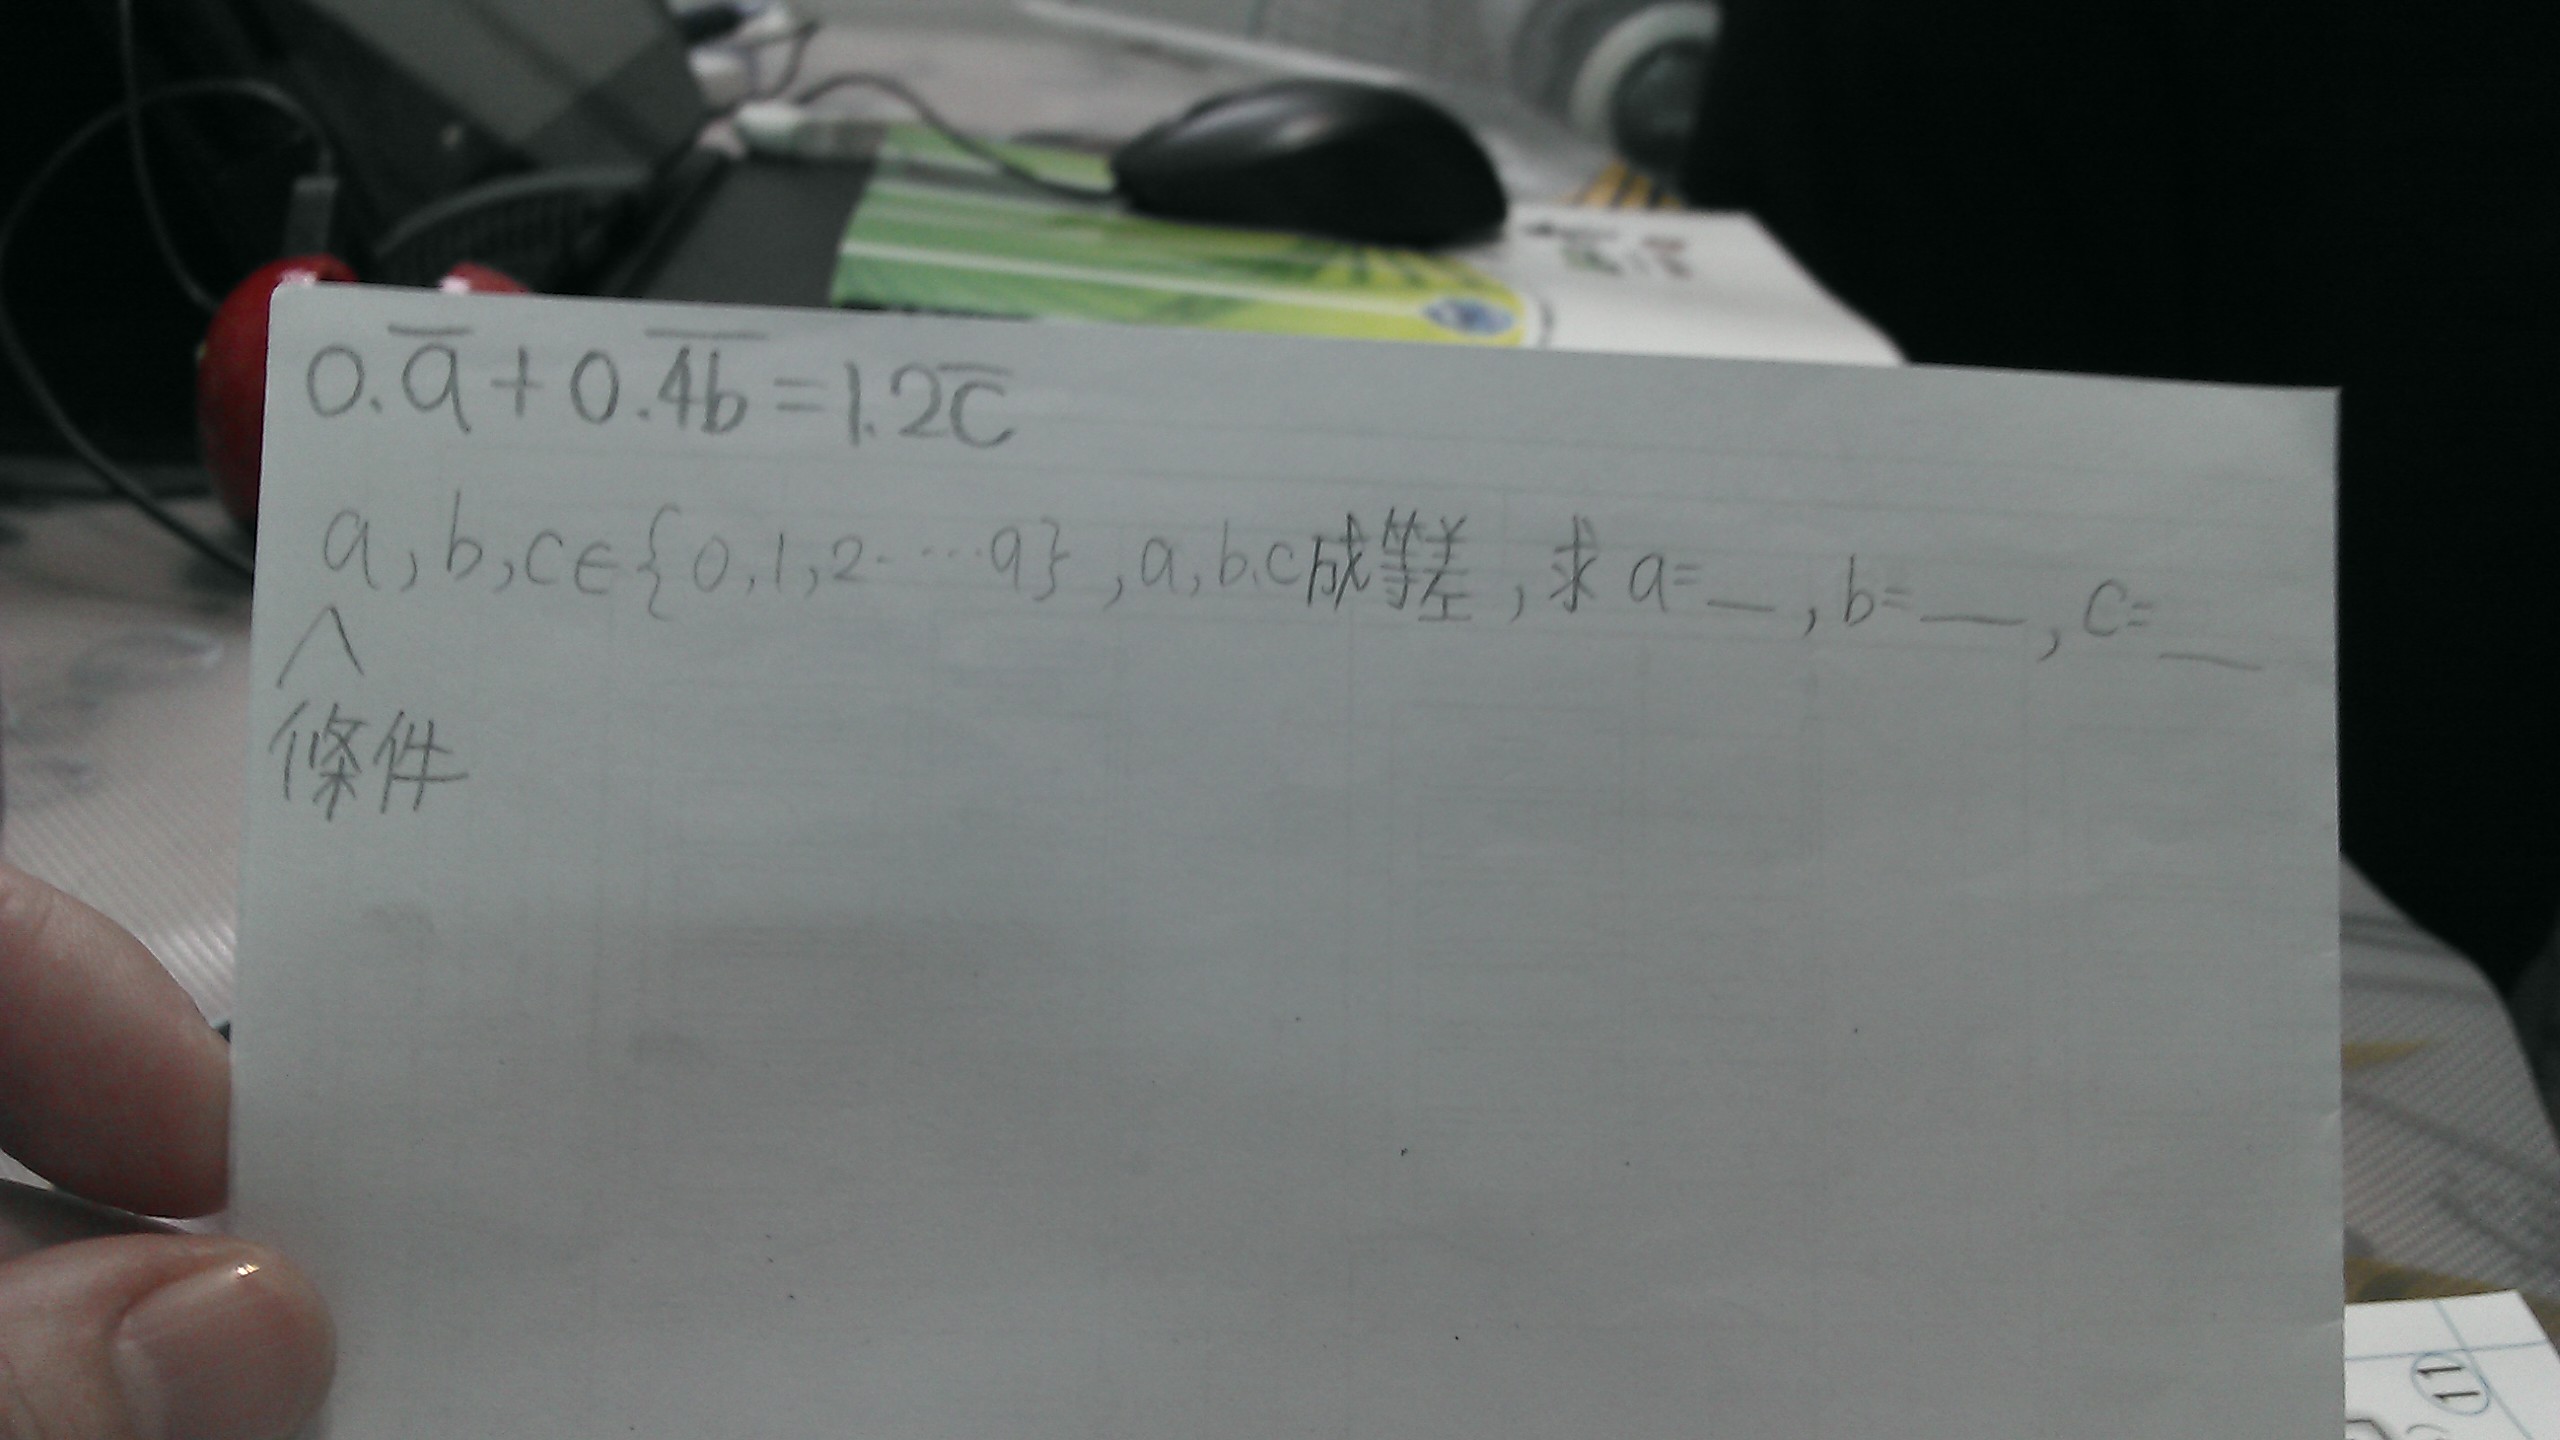 0.a̅+0.4̅b̅=1.2c̅
a,b,c∈{0,1,2⋯9},a,b,c成等差,求a=_,b=_,c=_
^
條件
11